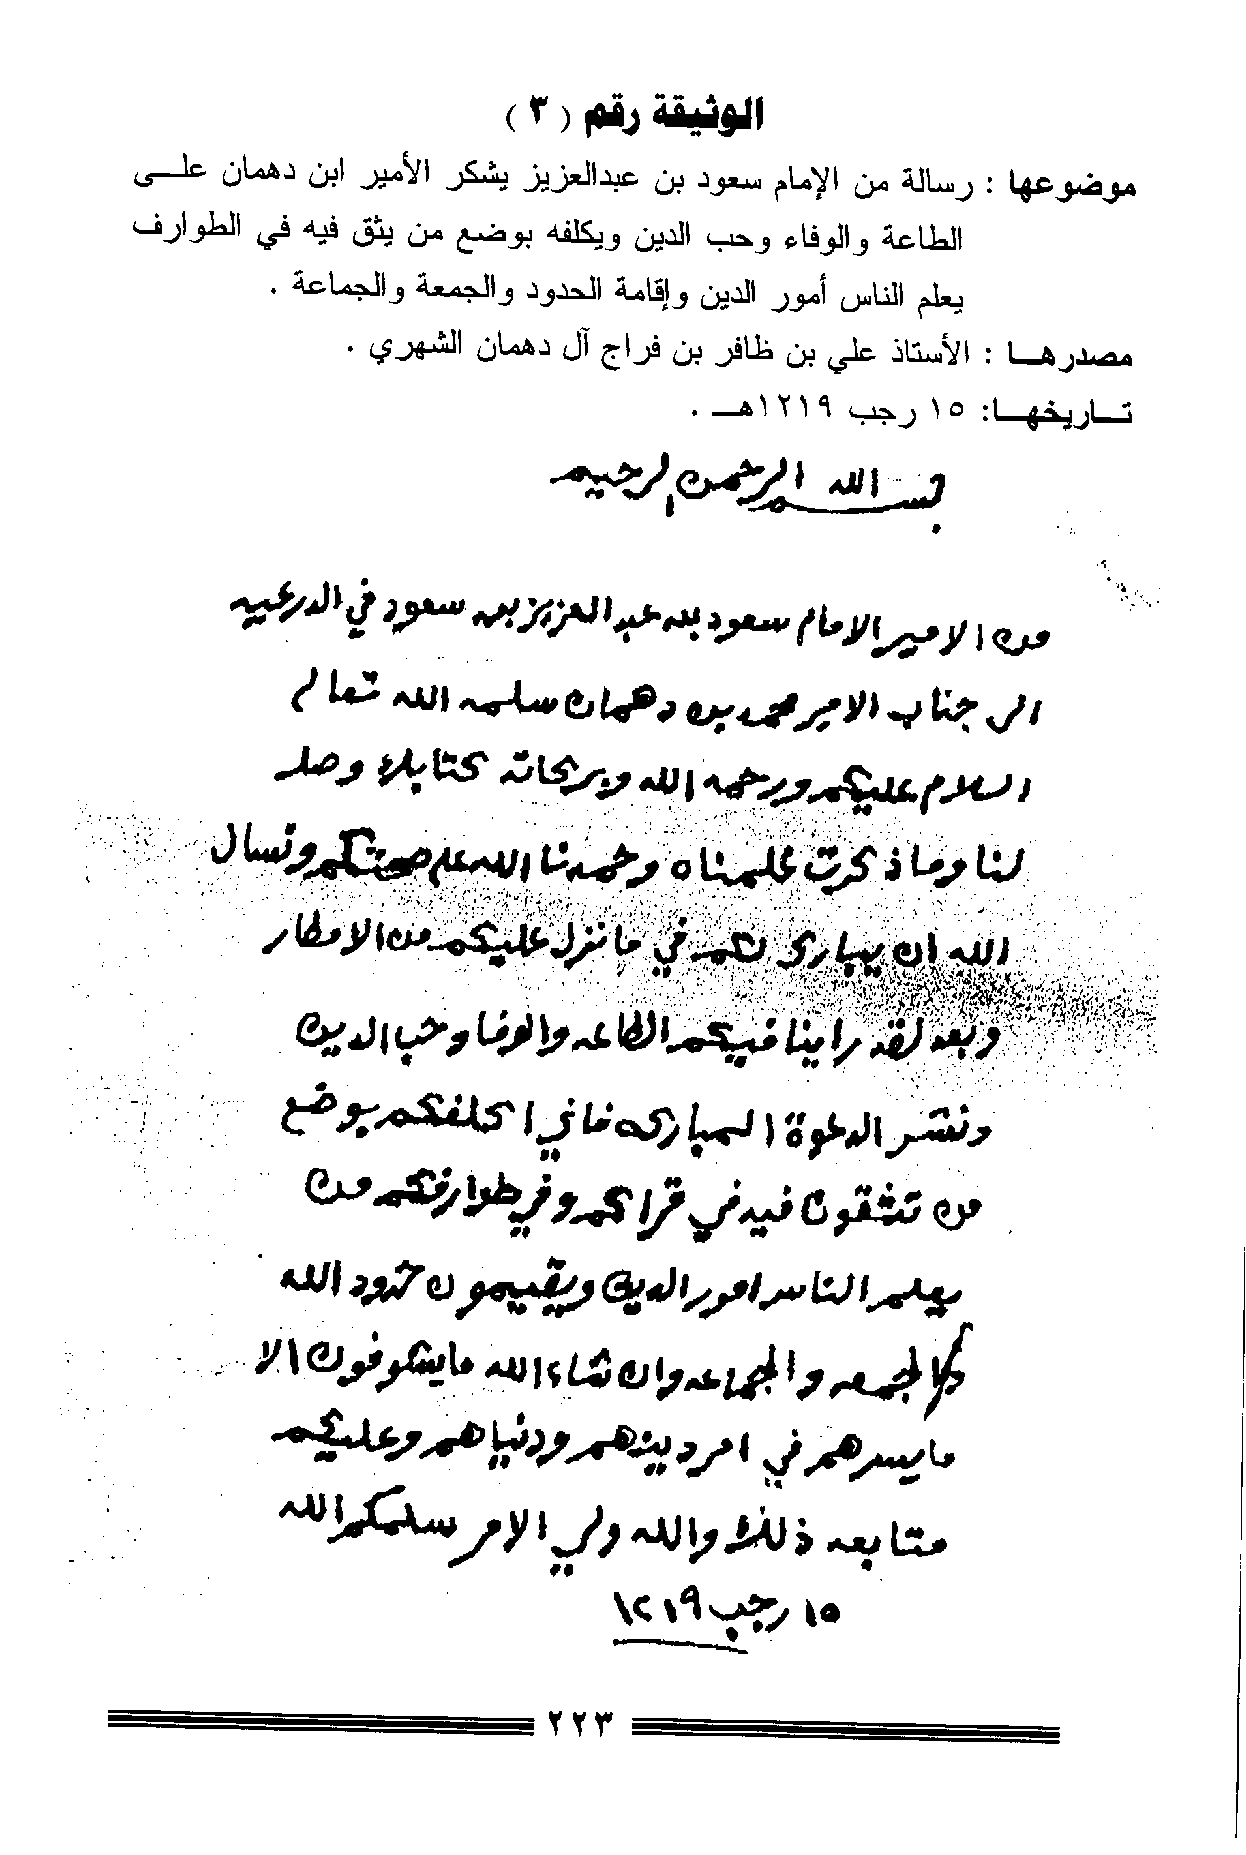 الوثيقة رقم ( ٣ )
موضوعها : رسالة من الإمام سعود بن عبدالعزيز يشكر الأمير ابن دهمان على
الطاعة والوفاء وحب الدين ويكلفه بوضع من يثق فيه في الطوارف
يعلم الناس أمور الدين وإقامة الحدود والجمعة والجماعة .
مصدرها : الأستاذ علي بن ظافر بن فراج آل دهمان الشهري .
تاريخها: ١٥ رجب ١٢١٩هـ .
بسم الله الرحمن الرحيم
من الامير الامام سعود بن عبد العزيز بن سعود في الدرعيه
الى جناب الامير محمد بن دهمان سلمه الله تعالى
السلام عليكم ورحمه الله وبركاته كتابك وصل
لنا وما ذكرت علمناه وحمدنا الله على صحتكم ونسال
الله ان يبارك لكم في ما نزل عليكم من الامطار
وبعد لقد راينا فيكم الطاعه والوفا وحب الدين
ونشر الدعوة المباركه فاني اكلفكم بوضع
من تثقون فيه في قراكم وفي طوارفكم من
يعلم الناس امور الدين ويقيمون حدود الله
والجمعه والجماعه وان شاء الله ما يشوفون الا
ما يسرهم في امر دينهم ودنياهم وعليكم
متابعه ذلك والله ولي الامر سلمكم الله
١٥ رجب ١٢١٩
٢٢٣